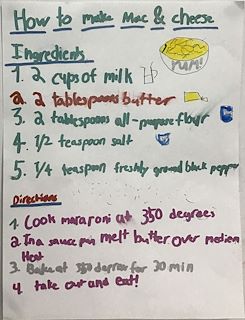 How to make Mac & cheese
Ingredients
YUM!
1. 2 cups of milk
2. 2 tablespoons butter
3. 2 tablespoons all-purpose flour
4. 1/2 teaspoon salt
5. 1/4 teaspoon freshly ground black pepper
Directions
1. Cook mararoni at 350 degrees
2. In a sauce pan melt butter over medium
Heat
3. Bake at 350 degrees for 30 min
4. take out and eat!